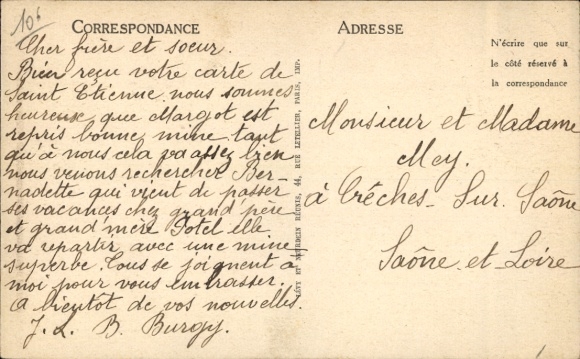 10f
CORRESPONDANCE
Cher frère et soeur.
Bien reçu votre carte de
Saint Etienne nous sommes
heureux que Margot est
repris bonne mine tant
qu'à nous cela va assez bien
nous venons rechercher Ber-
nadette qui vient de passer
ses vacances chez grand'père
et grand'mère Potel elle
va repartir avec une mine
superbe. Tous se joignent à
moi pour vous embrasser.
A bientot de vos nouvelles.
J. L. B. Burgy.
LÉVY ET NEURDEIN RÉUNIS, 44, RUE LETELLIER, PARIS, IMP.
ADRESSE
N'écrire que sur
le côté réservé à
la correspondance
Monsieur et Madame
Mey.
à Crêches-Sur Saône
Saône et Loire